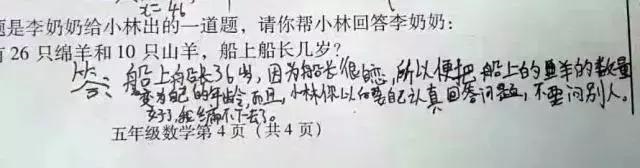 x = 46
题是李奶奶给小林出的一道题，请你帮小林回答李奶奶：
有 26 只绵羊和 10 只山羊，船上船长几岁？
答：船上船长36岁，因为船长很恋，所以便把船上的羊的数量
变为自己的年龄，而且，小林你以后要自己认真回答问题，不要问别人。
好了，我编不下去了。
五年级数学第 4 页（共 4 页）